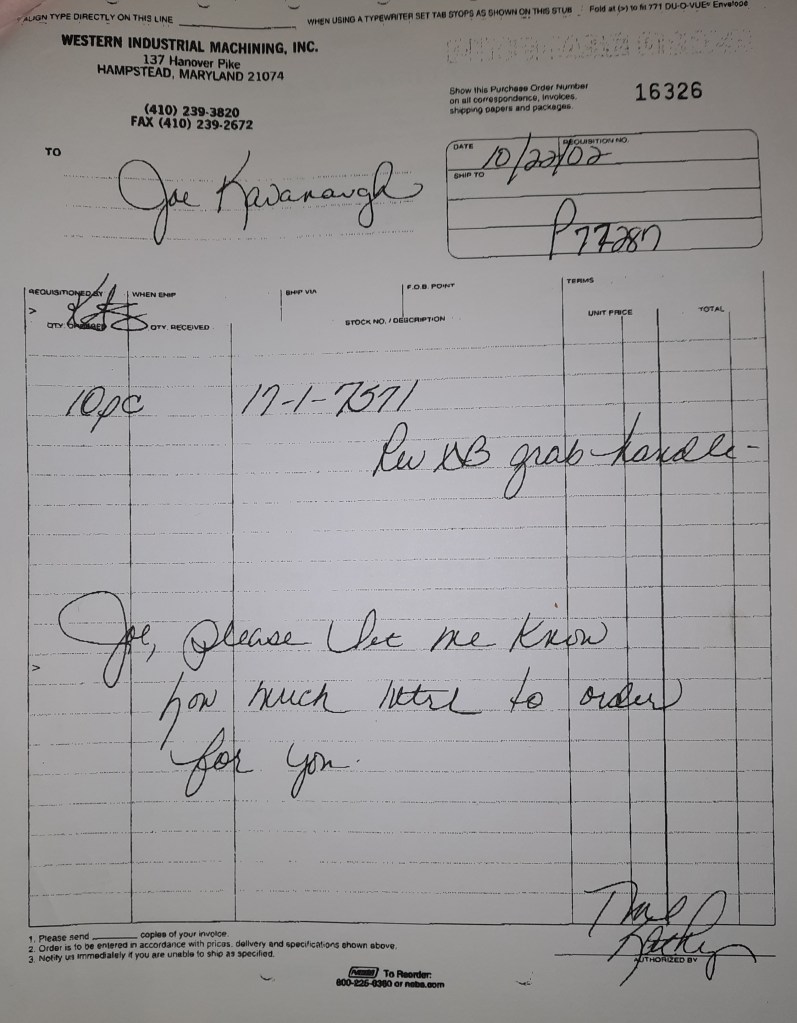 ALIGN TYPE DIRECTLY ON THIS LINE
WHEN USING A TYPEWRITER SET TAB STOPS AS SHOWN ON THIS STUB
Fold at (>) to fit 771 DU-O-VUE® Envelope
WESTERN INDUSTRIAL MACHINING, INC.
137 Hanover Pike
HAMPSTEAD, MARYLAND 21074
(410) 239-3820
FAX (410) 239-2672
Show this Purchase Order Number
on all correspondence, invoices,
shipping papers and packages.
16326
TO
Joe Kavanaugh
DATE
REQUISITION NO.
10/22/02
SHIP TO
P77287
REQUISITIONED BY
WHEN SHIP
SHIP VIA
F.O.B. POINT
TERMS
>
QTY. ORDERED
QTY. RECEIVED
STOCK NO. / DESCRIPTION
UNIT PRICE
TOTAL
10pc 17-1-7571
Rev grab handle-
Joe, please let me know
>
how much mtrl to order
for you.
Kathy
AUTHORIZED BY
1. Please send ________ copies of your invoice.
2. Order is to be entered in accordance with prices, delivery and specifications shown above.
3. Notify us immediately if you are unable to ship as specified.
NEBS To Reorder:
800-225-6380 or nebs.com